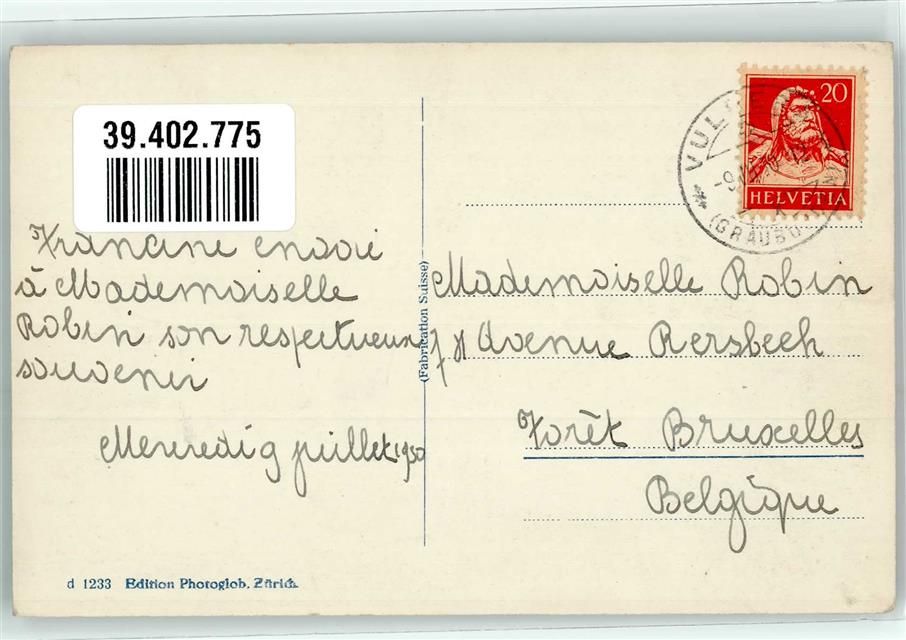 39.402.775
Francine envoie
à Mademoiselle
Robin son respectueux
souvenir
Mercredi 9 juillet 1930
d 1233 Edition Photoglob, Zürich.
(Fabrication Suisse)
20
HELVETIA
VUL
(GRAUBÜ
Mademoiselle Robin
Avenue Kersbeek
Forêt Bruxelles
Belgique